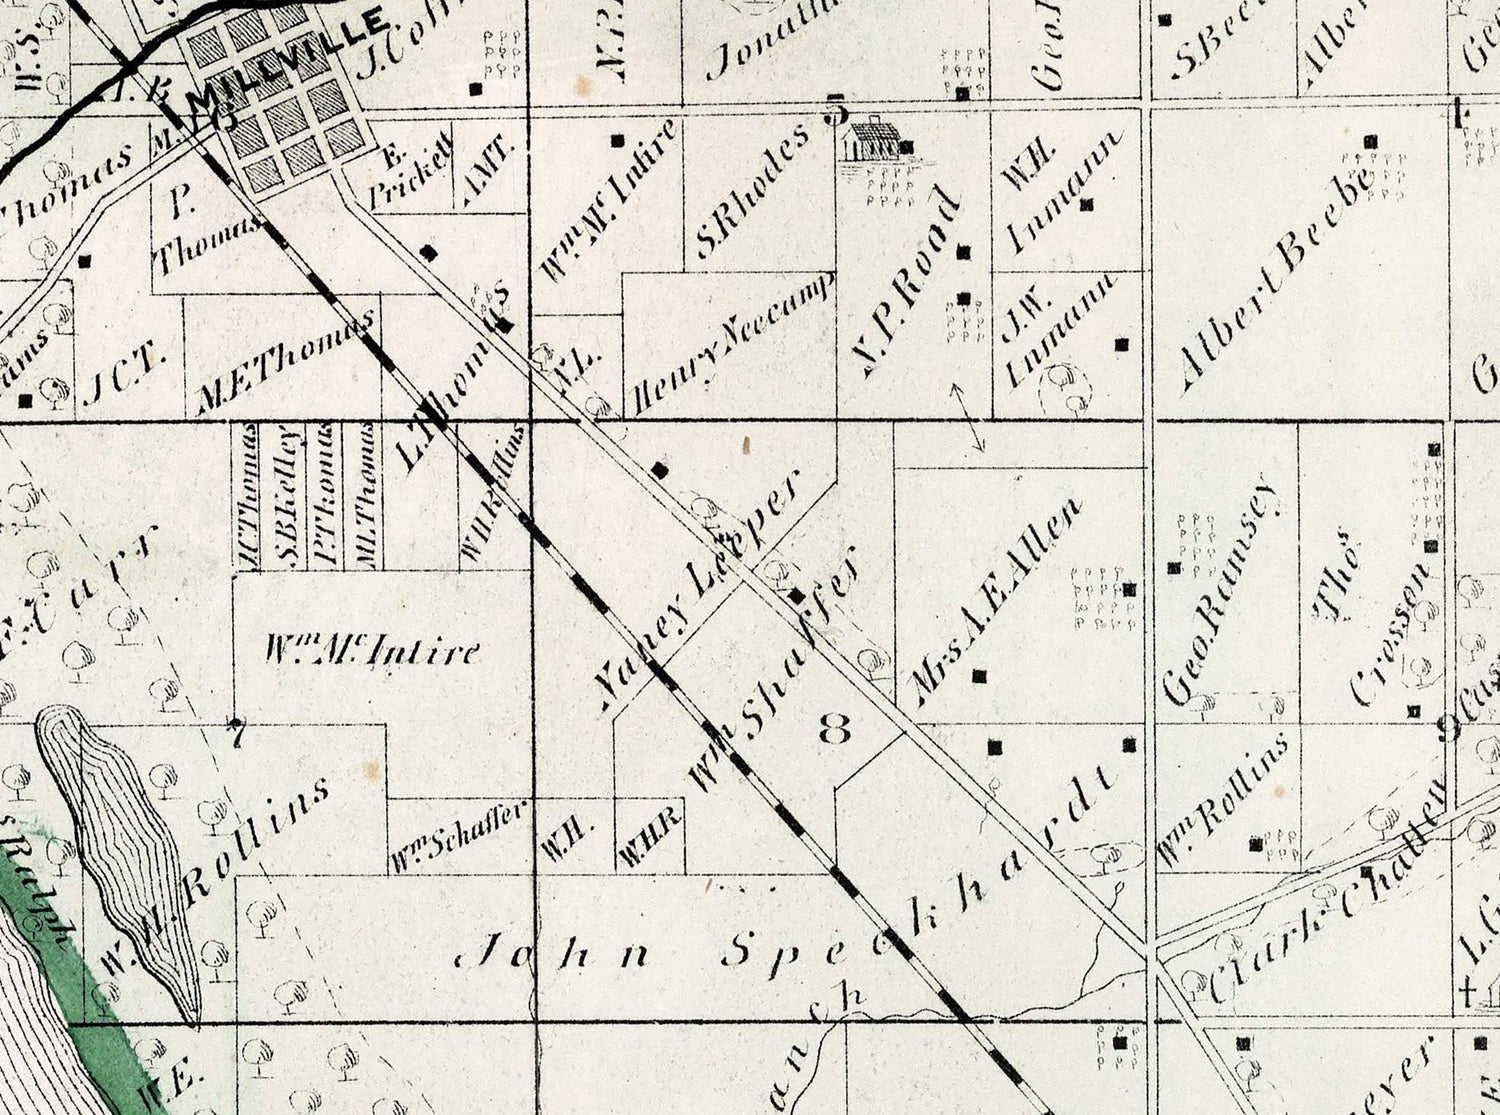 W.S.
MILLVILLE
J.Coff
N.P.
Jonath
Geo.
S.Beeb
Alber
Geo
M.
Thomas
P.
Thomas
E.
Prickett
A.M.T.
Wm Mc Intire
S.Rhodes
5
N.P.Rood
W.H.
Inmann
J.W.
Inmann
Albert Beebe
4
G
J.C.T.
M.E.Thomas
L.Thomas
N.L.
Henry Neecamp
J.C.Thomas
S.B.Kelley
P.Thomas
M.L.Thomas
W.H.Rollins
Nancy Leeper
Wm Shaffer
Mrs A.E.Allen
Geo.Ramsey
Thos
Crosson
Carr
Wm. Mc Intire
7
8
9
W.H.Rollins
Wm Schaffer
W.H.
W.H.R.
Wm Rollins
Clark Chatten
Ralph
John Speckhardt
L.G.
W.E.
an ch
eyer